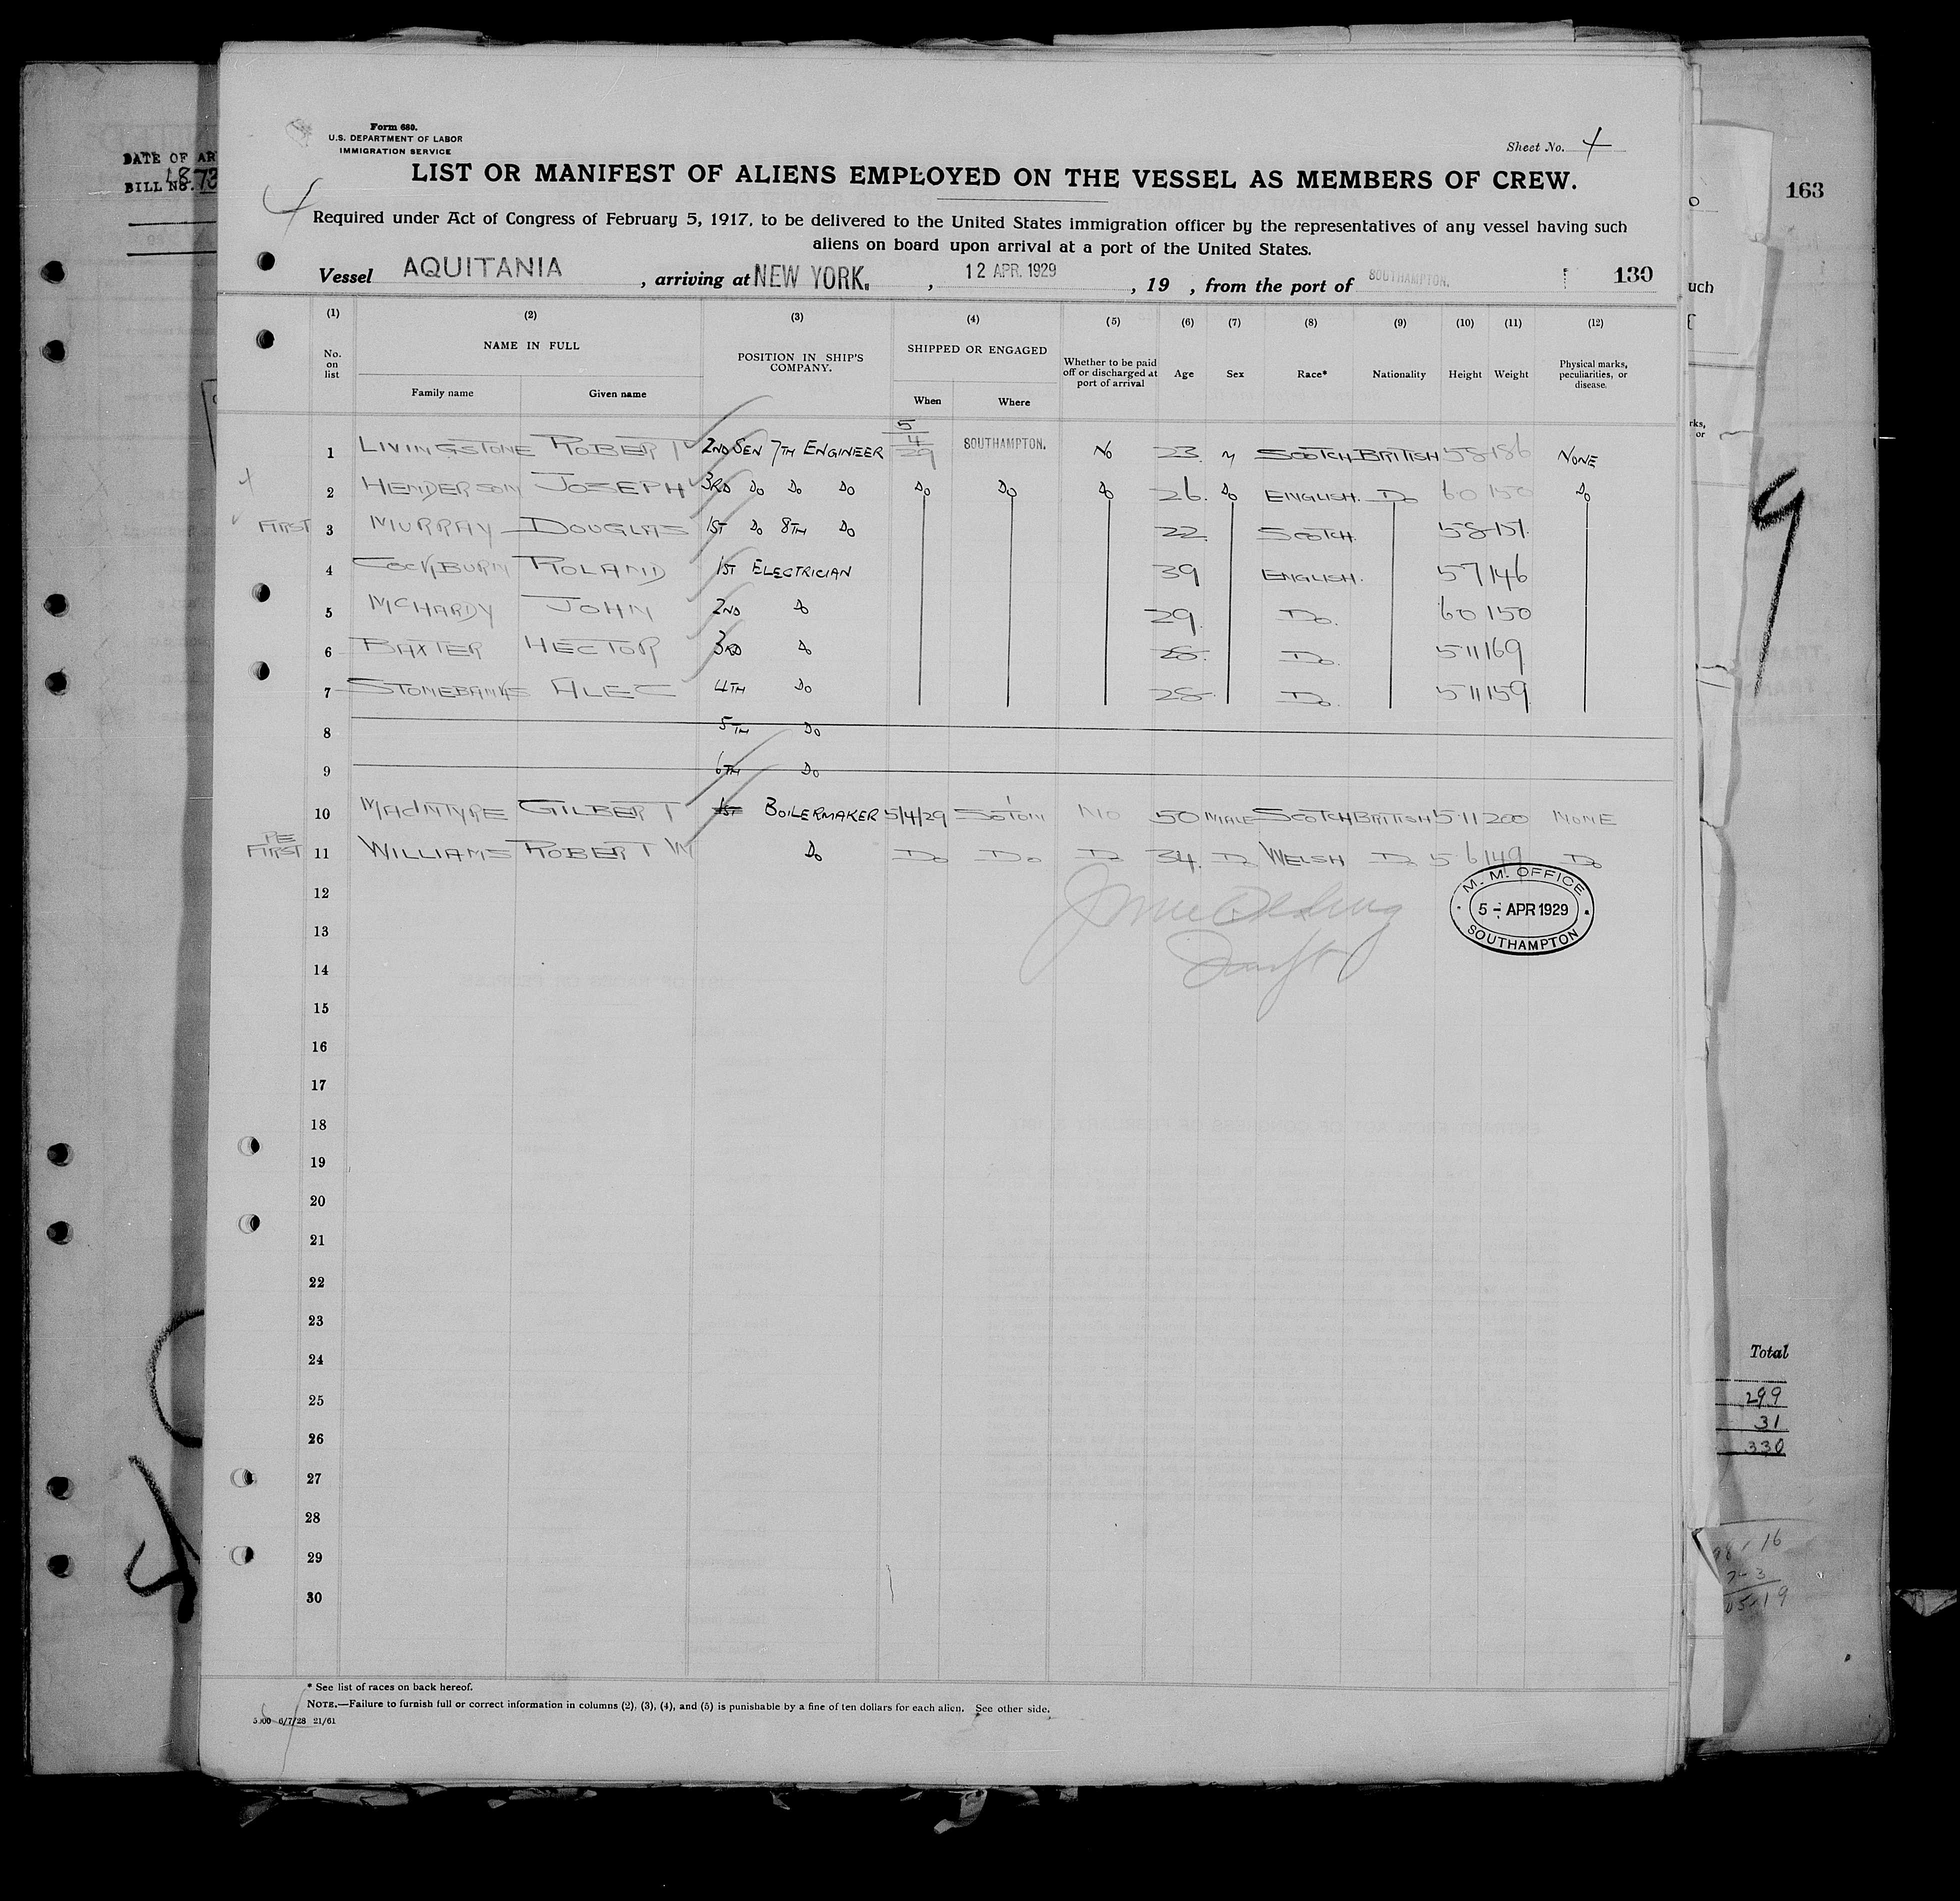 Form 680.
U.S. DEPARTMENT OF LABOR
IMMIGRATION SERVICE
Sheet No. 4
DATE OF AR
BILL NO.
163
LIST OR MANIFEST OF ALIENS EMPLOYED ON THE VESSEL AS MEMBERS OF CREW.
4
Required under Act of Congress of February 5, 1917, to be delivered to the United States immigration officer by the representatives of any vessel having such
aliens on board upon arrival at a port of the United States.
Vessel AQUITANIA , arriving at NEW YORK. , 12 APR. 1929 , 19 , from the port of SOUTHAMPTON. 130
uch
(1) (2) (3) (4) (5) (6) (7) (8) (9) (10) (11) (12)
No. on list NAME IN FULL Family name Given name POSITION IN SHIP'S COMPANY. SHIPPED OR ENGAGED When Where Whether to be paid off or discharged at port of arrival Age Sex Race* Nationality Height Weight Physical marks, peculiarities, or disease.
rks,
or
1 LIVINGSTONE ROBERT 2ND SEN 7TH ENGINEER 5/4/29 SOUTHAMPTON. NO 23 M SCOTCH BRITISH 58 186 NONE
2 HENDERSON JOSEPH 3RD DO DO DO DO DO DO 26. DO ENGLISH. DO 60 150 DO
FIRST 3 MURRAY DOUGLAS 1ST DO 8TH DO 22 SCOTCH. 58 151.
4 COCKBURN ROLAND 1ST ELECTRICIAN 39 ENGLISH. 57 146
5 MCHARDY JOHN 2ND DO 29. DO. 60 150
6 BAXTER HECTOR 3RD DO 28. DO. 511 169
7 STONEBANKS ALEC 4TH DO 28. DO. 511 159
8 5TH DO
9 6TH DO
10 MACINTYRE GILBERT 1ST BOILERMAKER 5/4/29 SO'TON NO 50 MALE SCOTCH BRITISH 5.11 200 NONE
PE
FIRST 11 WILLIAMS ROBERT W DO DO DO DO 34. DO WELSH DO 5.6 149 DO
M. M. OFFICE
5 - APR 1929
SOUTHAMPTON
9
12
13
14
15
16
17
18
19
20
21
22
23
24
25
26
27
28
29
30
Total
299
31
330
* See list of races on back hereof.
NOTE.—Failure to furnish full or correct information in columns (2), (3), (4), and (5) is punishable by a fine of ten dollars for each alien. See other side.
6/7/28 21/61